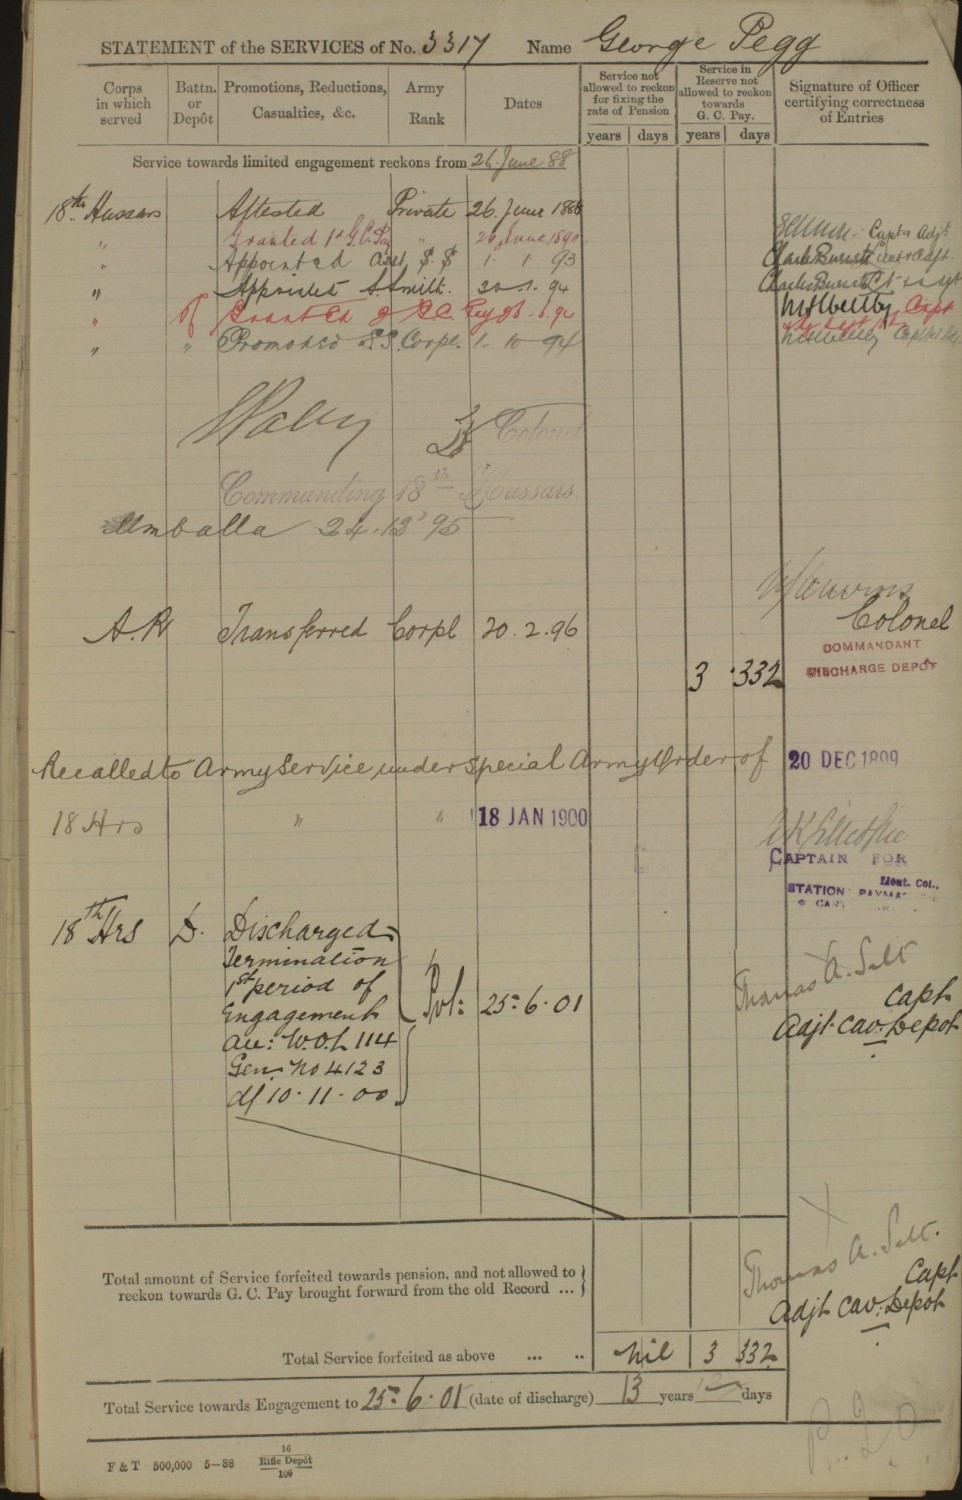 STATEMENT of the SERVICES of No. 3317 Name George Pegg
Corps in which served
Battn. or Depôt
Promotions, Reductions, Casualties, &c.
Army Rank
Dates
Service not allowed to reckon for fixing the rate of Pension
years days
Service in Reserve not allowed to reckon towards G. C. Pay.
years days
Signature of Officer certifying correctness of Entries
Service towards limited engagement reckons from 26. June 88
18th Hussars Attested Private 26. June 1888
" Granted 1st G.C. Pay " 26 June 1890 Capt & Adjt
" Appointed Asst. S. S 1. 1 93 Charles Burnett Lieut & Adjt.
" Appointed S. Smith. 20. 1. 94 Charles Burnett
" Granted 2 G.C. Pay 26. 6. 94 Capt
" " Promoted S.S. Corpl. 1. 10 94 Capt
Colonel
Commanding 18th Hussars
Umballa 24.12 95
A.R Transferred Corpl 20.2.96
Colonel
COMMANDANT
DISCHARGE DEPÔT
3 332
Recalled to Army Service under Special Army Order of 20 DEC 1899
18 Hrs " " 18 JAN 1900
CAPTAIN FOR
Lieut. Col.,
STATION PAYMA
18th Hrs D. Discharged
Termination
1st period of
Engagement Pvt: 25. 6. 01
au: W.O.L 114
Gen No 4123
d/ 10. 11. 00
Thomas A. Salt
Capt
Adjt. Cav: Depot
Total amount of Service forfeited towards pension, and not allowed to
reckon towards G. C. Pay brought forward from the old Record ...
Thomas A. Salt.
Capt
Adjt Cav: Depot
Total Service forfeited as above ... .. Nil 3 332
Total Service towards Engagement to 25. 6. 01 (date of discharge) 13 years days
F & T 500,000 5—88
16
Rifle Depôt
106